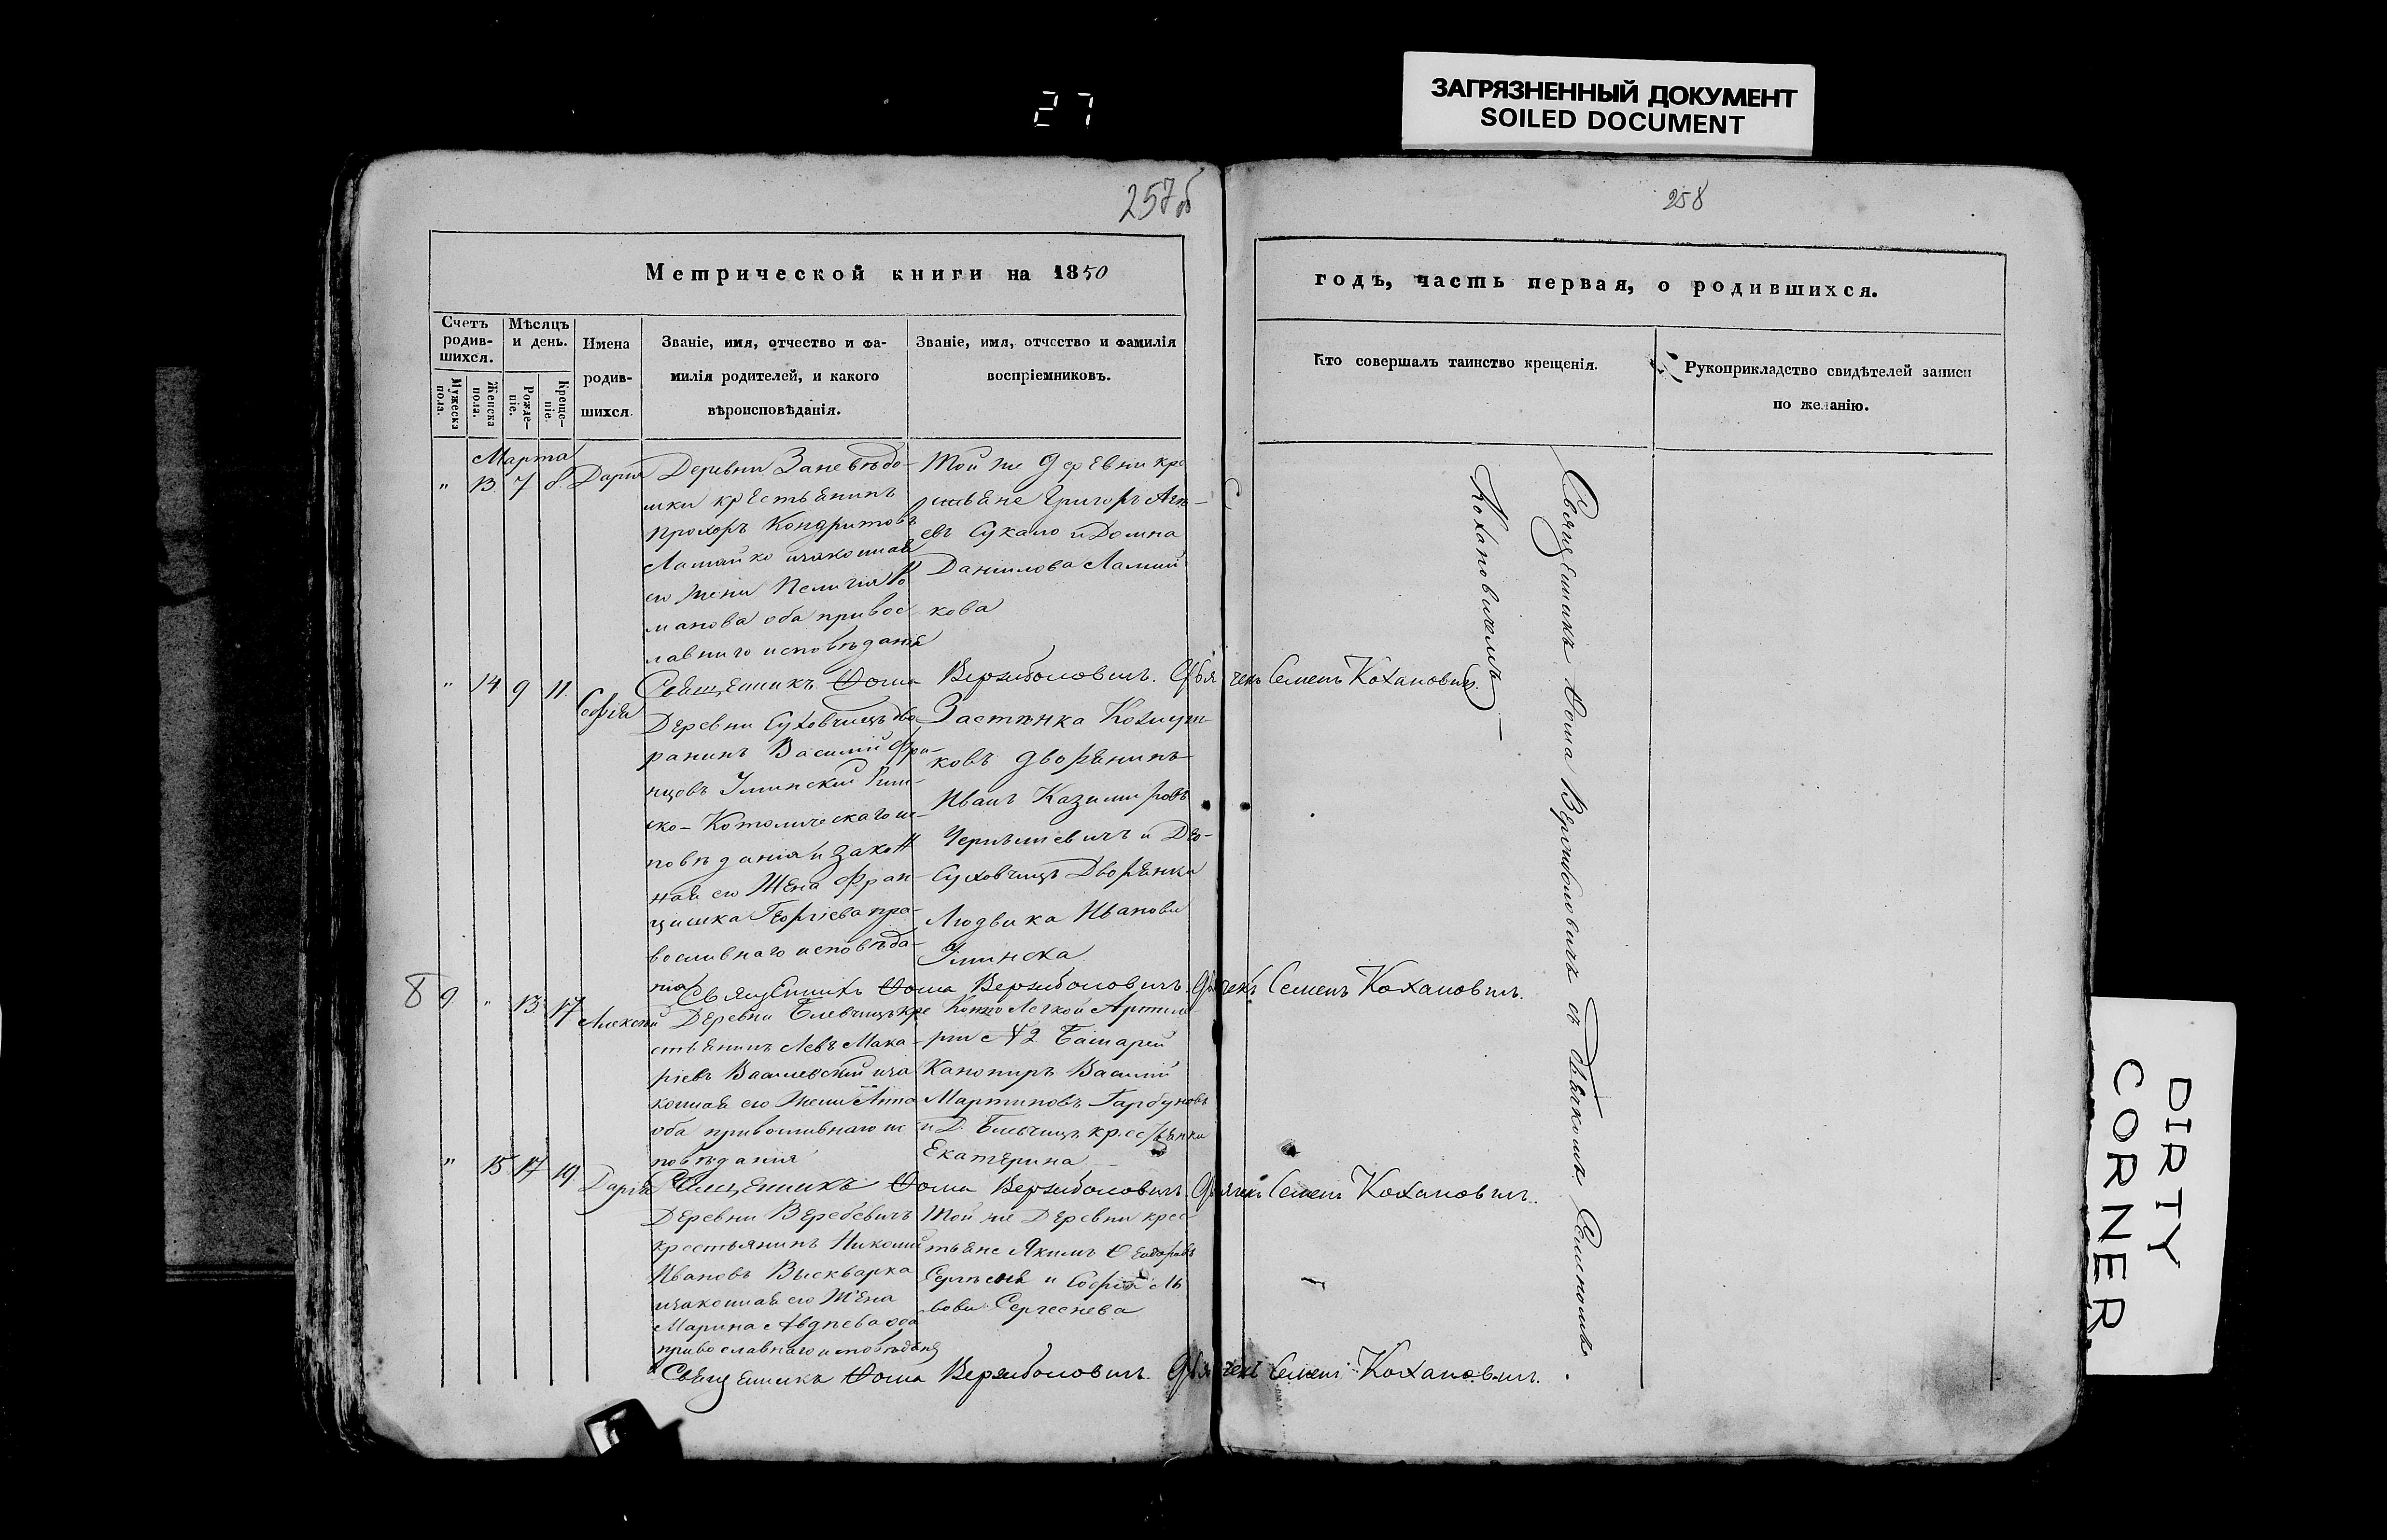 27
ЗАГРЯЗНЕННЫЙ ДОКУМЕНТ
SOILED DOCUMENT
257об
258
Метрической книги на 1850
годъ, часть первая, о родившихся.
Счетъ родив-шихся.
Мужеска пола.
Женска пола.
Мѣсяцъ и день.
Рожде-ніе.
Креще-ніе.
Имена
родив-
шихся.
Званіе, имя, отчество и фа-
милія родителей, и какого
вѣроисповѣданія.
Званіе, имя, отчество и фамилія
воспріемниковъ.
Кто совершалъ таинство крещенія.
Рукоприкладство свидѣтелей записи
по желанію.
Марта
" 13 7 8 Дарія
Деревни
крестьянинъ
Прохоръ Кондратовъ
его жена Пелагія Ро
манова оба правос
лавнаго исповѣданія
Той же деревни кре
стьяне Григоръ
евъ Сукало и Домна
Данилова Лапий
кова
Священникъ Ѳома Вержболовичъ. Дьячекъ Семенъ Кохановичъ.
" 14 9 11 Софія
Деревни Суховчицъ дво
ранинъ Василій Фра-
нцовъ Рим-
ско-Котолическаго ис-
повѣданія и закон
ная его Жена Фран
цишка Георгіева пра-
вославнаго исповѣда-
нія
Застѣнка
ковъ дворянинъ
Иванъ Казимировъ
и Дер-
Суховчицъ Дворянка
Людвика Иванова
Священникъ Ѳома Вержболовичъ. Дьячекъ Семенъ Кохановичъ.
8 9 " 13 17 Алексій
Деревни кре
стьянинъ Левъ Мака-
ріевъ Василевскій и за
конная его Жена Анна
оба православнаго ис
повѣданія
Конно Легкой Артиле
ріи №2 Батареи
Канониръ Василій
Мартиновъ Гарбуновъ
и Д. крестьянка
Екатерина
Священникъ Ѳома Вержболовичъ Дьячекъ Семенъ Кохановичъ.
" 15 17 19 Дарія
Деревни Веребевичъ
крестьянинъ Николай
Ивановъ Выскварка
и законная его Жена
Марина Авдѣева оба
православнаго исповѣданія
Той же Деревни крес
тьяне Якимъ Ѳеодоровъ
и Софія Ль
вова Сергеенева
Священникъ Ѳома Вержболовичъ. Дьячекъ Семенъ Кохановичъ.
Священникъ Ѳома Вержболовичъ съ Дьячкомъ Семеномъ
Кохановичемъ
DIRTY
CORNER